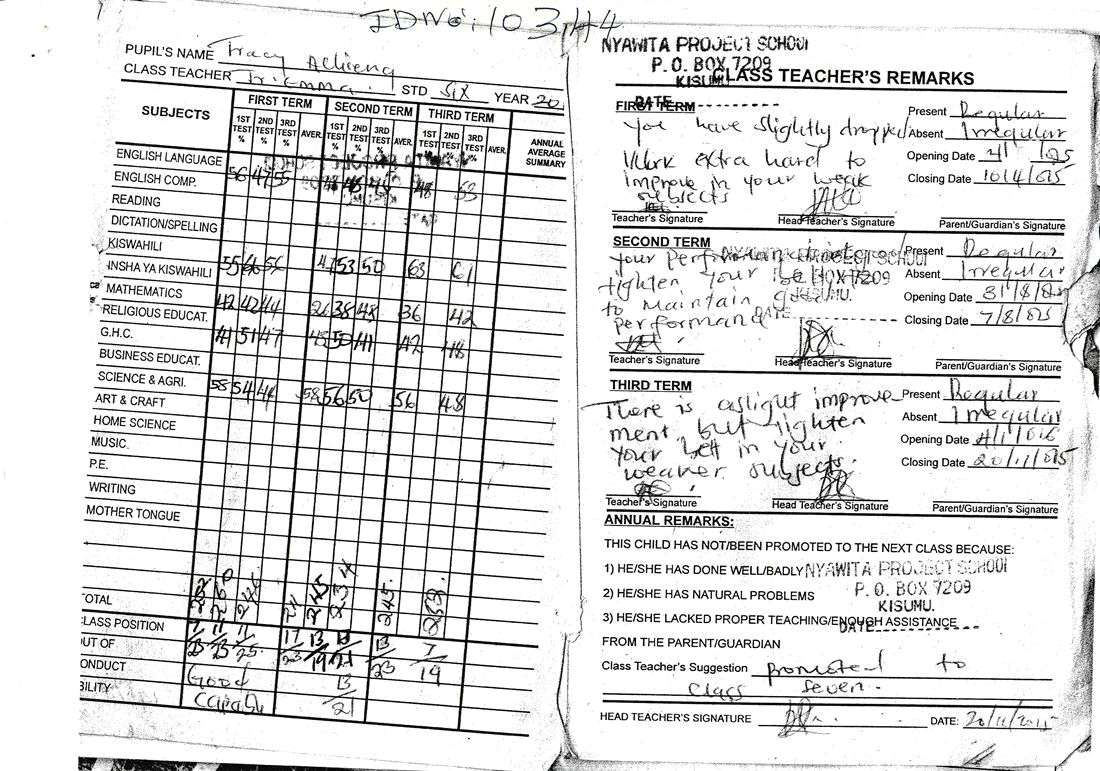 IDNO: 103144
PUPIL'S NAME Tracy Achieng
CLASS TEACHER Tr. Emma. STD SIX YEAR 20
SUBJECTS FIRST TERM SECOND TERM THIRD TERM ANNUAL AVERAGE SUMMARY
1ST TEST % 2ND TEST % 3RD TEST % AVER. 1ST TEST % 2ND TEST % 3RD TEST % AVER. 1ST TEST % 2ND TEST % 3RD TEST % AVER.
ENGLISH LANGUAGE
ENGLISH COMP. 56 47 55 48 53
READING
DICTATION/SPELLING
KISWAHILI
INSHA YA KISWAHILI 55 66 56 47 53 50 63 61
MATHEMATICS
RELIGIOUS EDUCAT. 42 42 44 26 38 48 36 42
G.H.C. 41 51 47 45 50 41 42 48
BUSINESS EDUCAT.
SCIENCE & AGRI. 58 54 44 58 56 50 56 48
ART & CRAFT
HOME SCIENCE
MUSIC
P.E.
WRITING
MOTHER TONGUE
TOTAL 260 246 234 245
CLASS POSITION 7 11 11 17 13 13 13 7
OUT OF 23 23 25 23 19 21 23 19
CONDUCT Good 13
BILITY Capable 21
NYAWITA PROJECT SCHOOL
P. O. BOX 7209
KISUMU.
DATE
CLASS TEACHER'S REMARKS
FIRST TERM
You have slightly dropped
Work extra hard to
improve in your weak
subjects
Present Regular
Absent Irregular
Opening Date
Closing Date 10/4/015
Teacher's Signature Head Teacher's Signature Parent/Guardian's Signature
SECOND TERM
NYAWITA PROJECT SCHOOL
P. O. BOX 7209
KISUMU.
DATE
Your performance
tighten your belt
to maintain good
performance
Present Regular
Absent Irregular
Opening Date
Closing Date 7/8/015
Teacher's Signature Head Teacher's Signature Parent/Guardian's Signature
THIRD TERM
There is aslight improve
ment but tighten
your belt in your
weaker subjects.
Present Regular
Absent Irregular
Opening Date 4/1/016
Closing Date 20/11/015
Teacher's Signature Head Teacher's Signature Parent/Guardian's Signature
ANNUAL REMARKS:
THIS CHILD HAS NOT/BEEN PROMOTED TO THE NEXT CLASS BECAUSE:
1) HE/SHE HAS DONE WELL/BADLY
NYAWITA PROJECT SCHOOL
P. O. BOX 7209
2) HE/SHE HAS NATURAL PROBLEMS
KISUMU.
3) HE/SHE LACKED PROPER TEACHING/ENOUGH ASSISTANCE
DATE
FROM THE PARENT/GUARDIAN
Class Teacher's Suggestion promoted to
class seven.
HEAD TEACHER'S SIGNATURE DATE: 20/11/2015